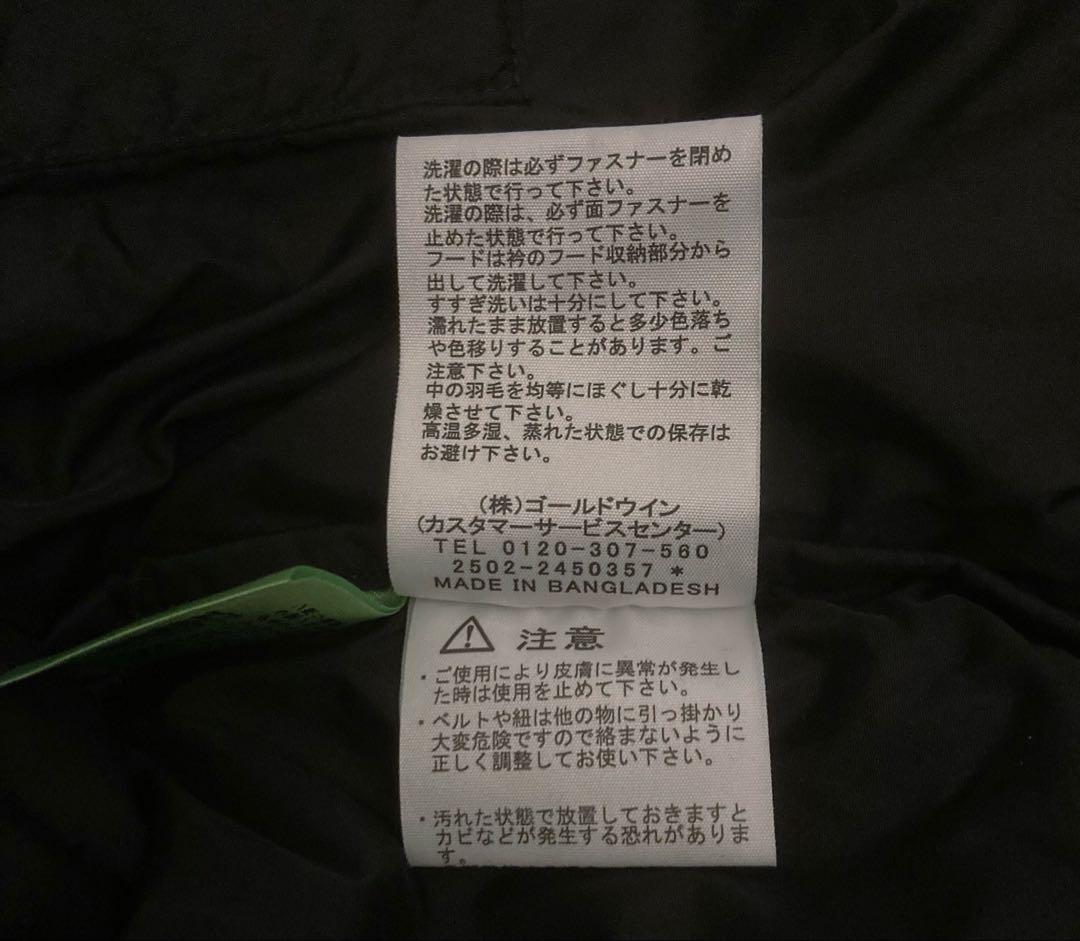 洗濯の際は必ずファスナーを閉め
た状態で行って下さい。
洗濯の際は、必ず面ファスナーを
止めた状態で行って下さい。
フードは衿のフード収納部分から
出して洗濯して下さい。
すすぎ洗いは十分にして下さい。
濡れたまま放置すると多少色落ち
や色移りすることがあります。ご
注意下さい。
中の羽毛を均等にほぐし十分に乾
燥させて下さい。
高温多湿、蒸れた状態での保存は
お避け下さい。
(株)ゴールドウイン
(カスタマーサービスセンター)
TEL 0120-307-560
2502-2450357 *
MADE IN BANGLADESH
注意
・ご使用により皮膚に異常が発生し
た時は使用を止めて下さい。
・ベルトや紐は他の物に引っ掛かり
大変危険ですので絡まないように
正しく調整してお使い下さい。
・汚れた状態で放置しておきますと
カビなどが発生する恐れがありま
す。